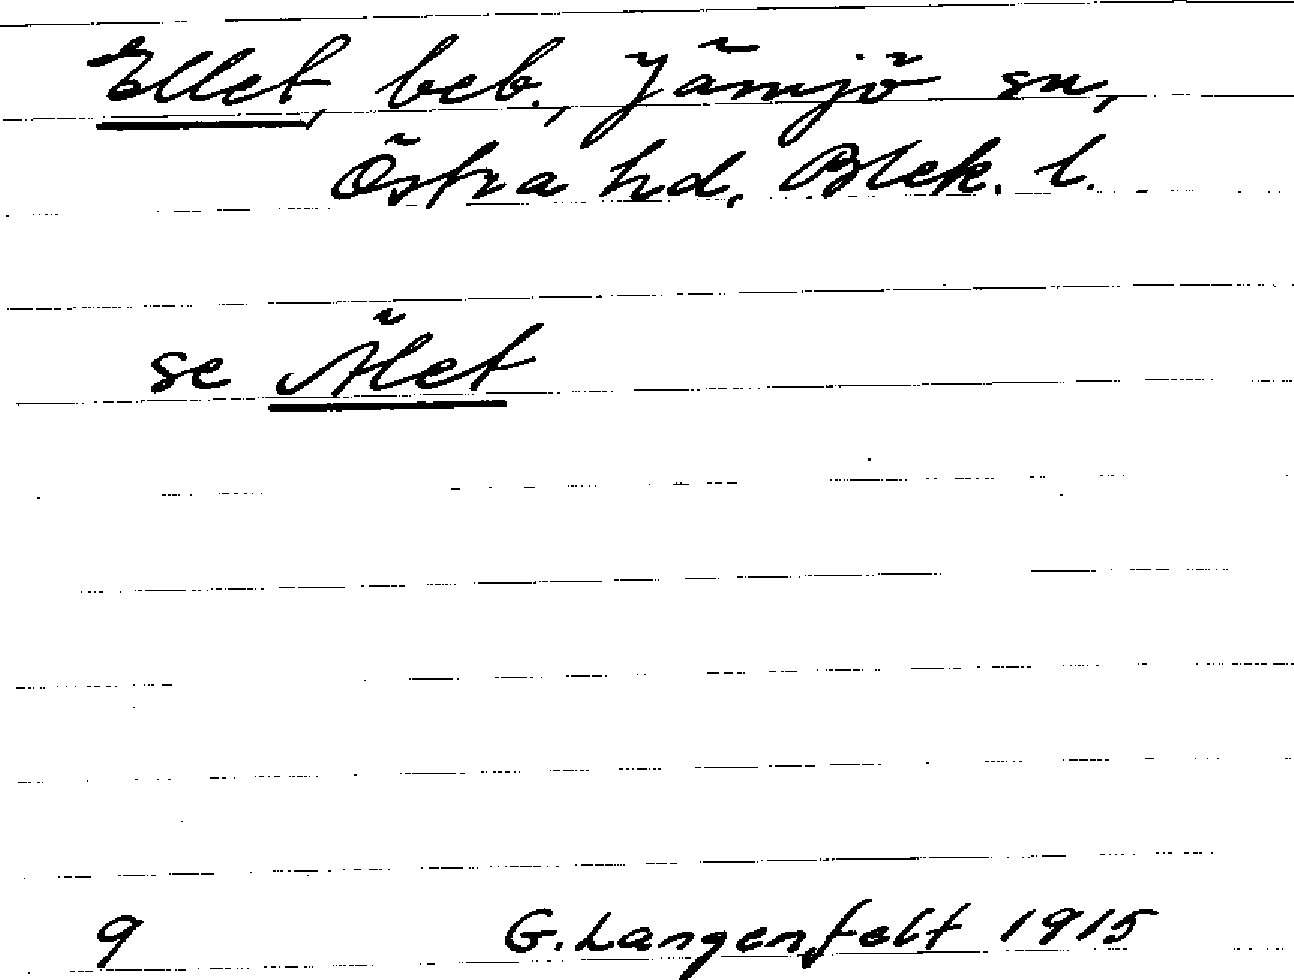 Ellet, beb., Jämjö sn,
Östra hd. Blek. l.
se Ålet
9 G. Langenfelt 1915